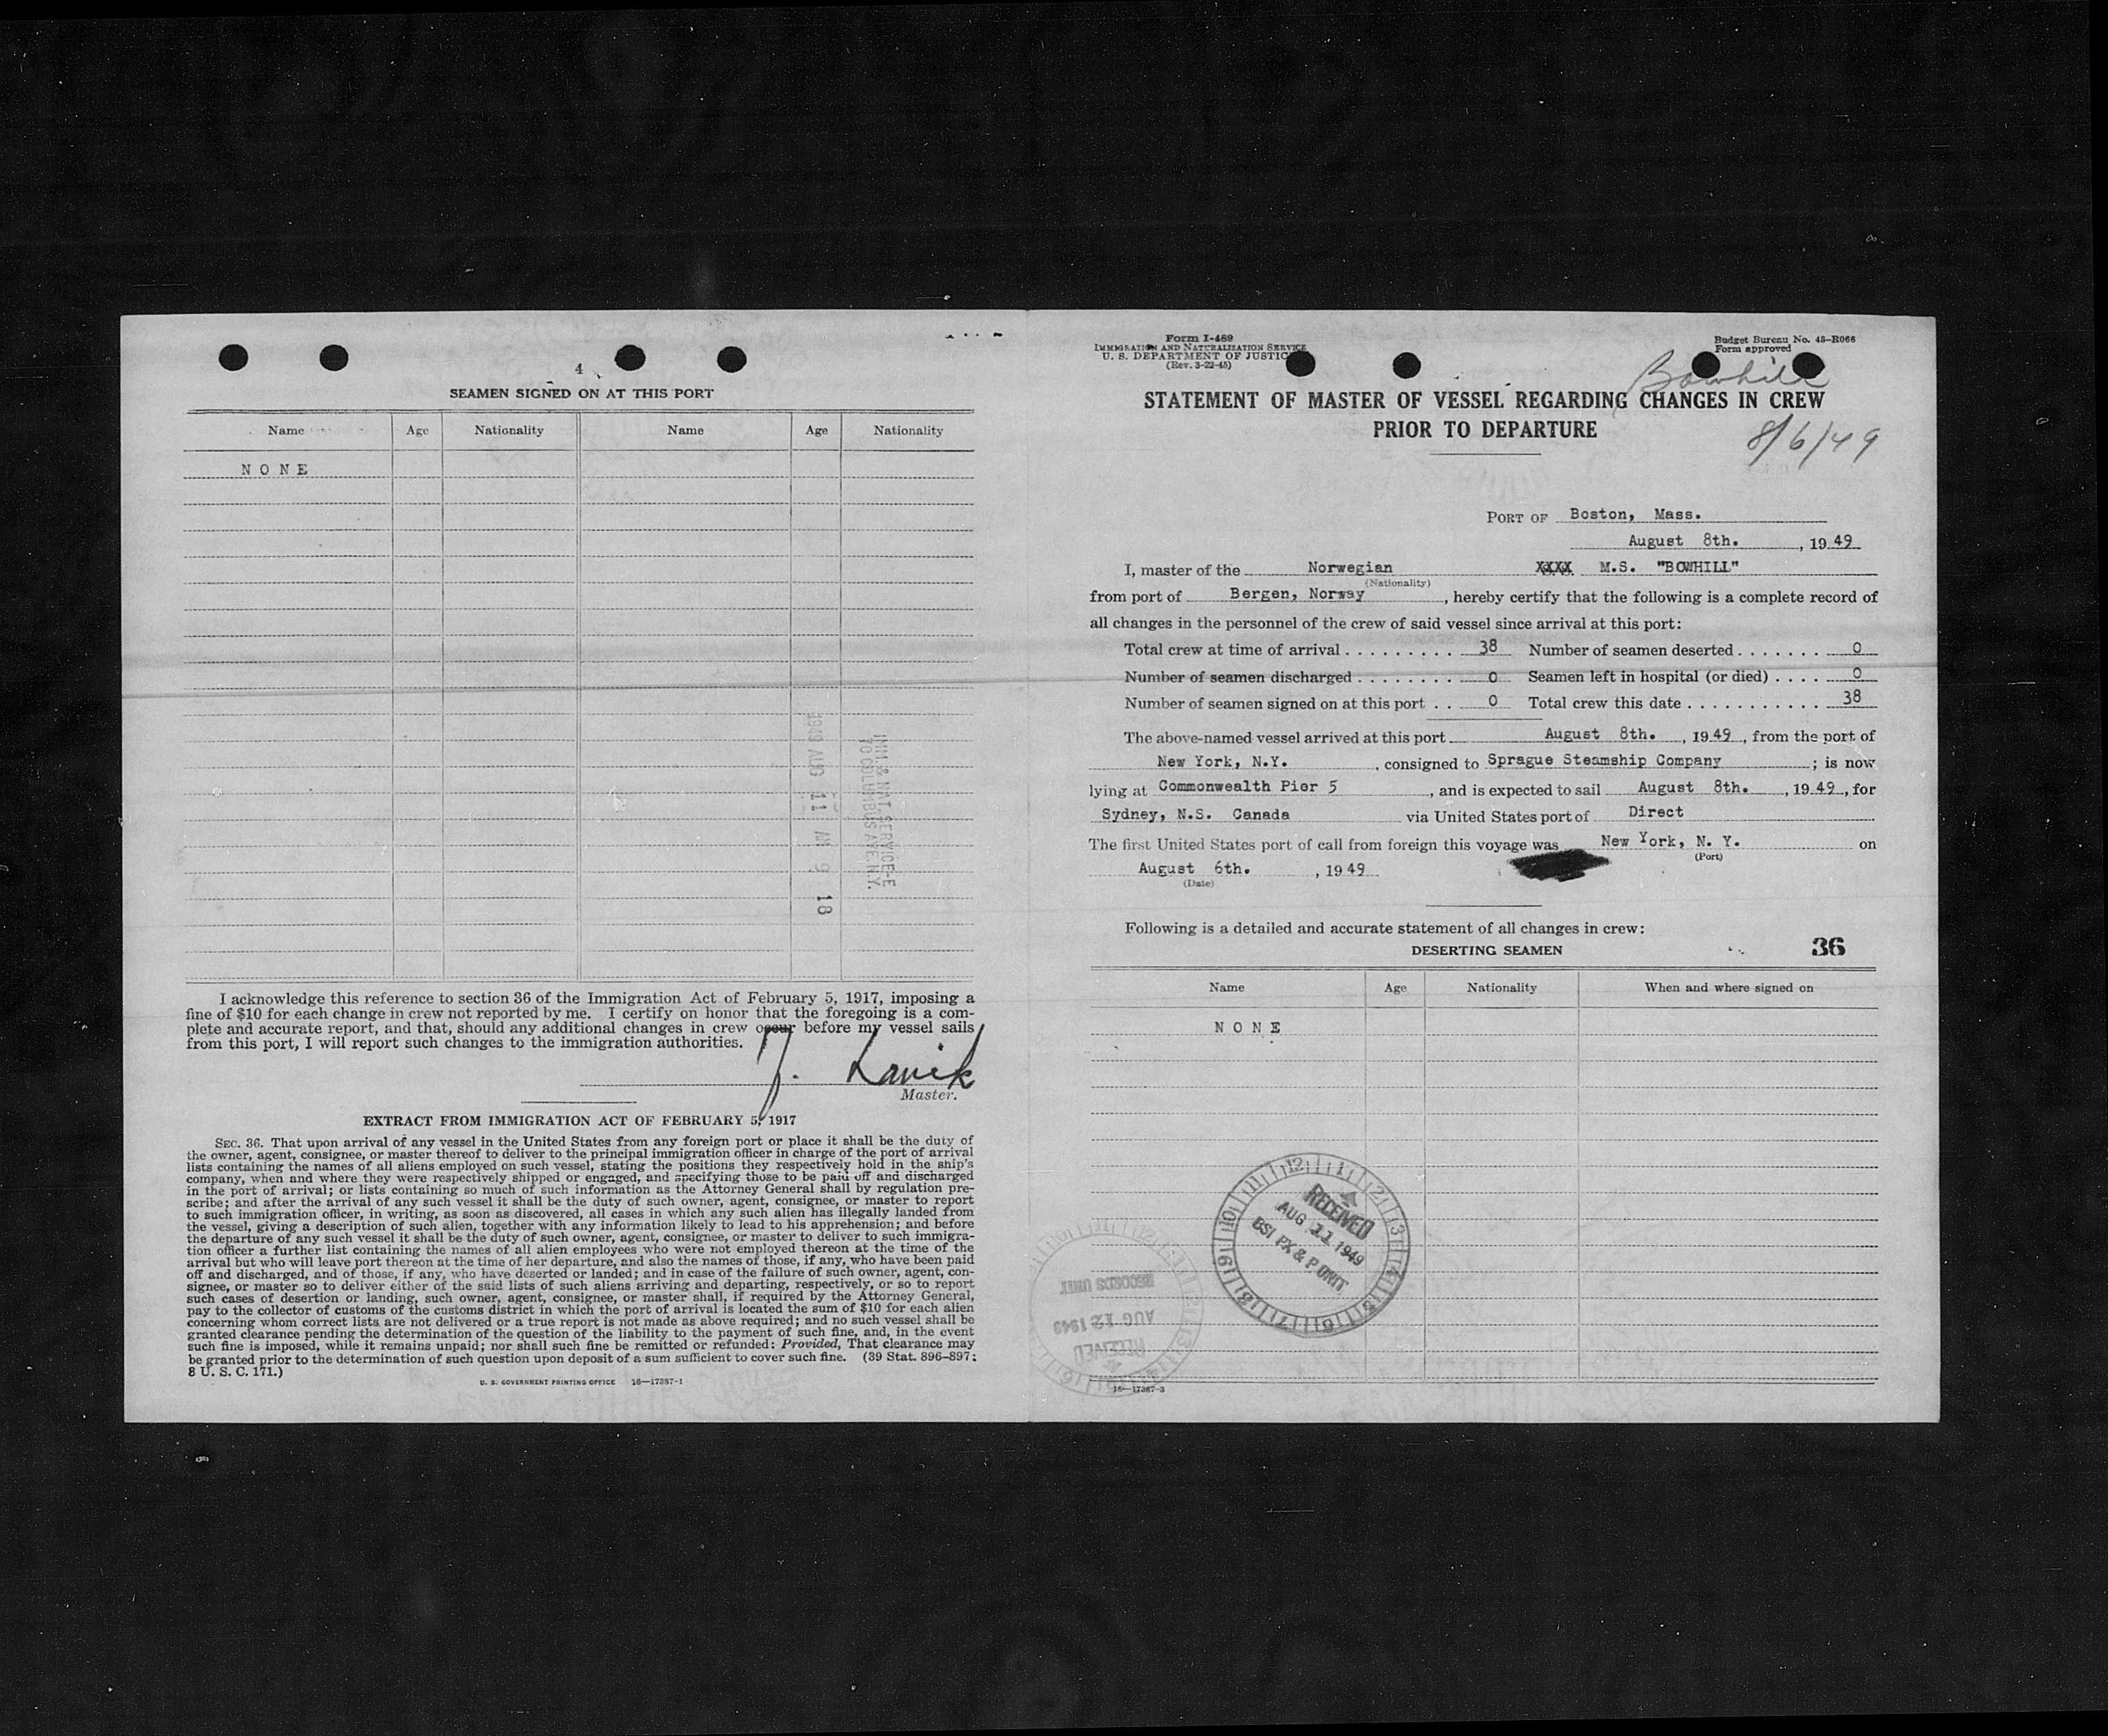 4
SEAMEN SIGNED ON AT THIS PORT
Name Age Nationality Name Age Nationality
N O N E
1949 AUG 11 AM 9 18
IMM. & NAT. SERVICE-E
70 COLUMBUS AVE. N.Y.
I acknowledge this reference to section 36 of the Immigration Act of February 5, 1917, imposing a
fine of $10 for each change in crew not reported by me. I certify on honor that the foregoing is a com-
plete and accurate report, and that, should any additional changes in crew occur before my vessel sails
from this port, I will report such changes to the immigration authorities.
Master.
EXTRACT FROM IMMIGRATION ACT OF FEBRUARY 5, 1917
SEC. 36. That upon arrival of any vessel in the United States from any foreign port or place it shall be the duty of
the owner, agent, consignee, or master thereof to deliver to the principal immigration officer in charge of the port of arrival
lists containing the names of all aliens employed on such vessel, stating the positions they respectively hold in the ship's
company, when and where they were respectively shipped or engaged, and specifying those to be paid off and discharged
in the port of arrival; or lists containing so much of such information as the Attorney General shall by regulation pre-
scribe; and after the arrival of any such vessel it shall be the duty of such owner, agent, consignee, or master to report
to such immigration officer, in writing, as soon as discovered, all cases in which any such alien has illegally landed from
the vessel, giving a description of such alien, together with any information likely to lead to his apprehension; and before
the departure of any such vessel it shall be the duty of such owner, agent, consignee, or master to deliver to such immigra-
tion officer a further list containing the names of all alien employees who were not employed thereon at the time of the
arrival but who will leave port thereon at the time of her departure, and also the names of those, if any, who have been paid
off and discharged, and of those, if any, who have deserted or landed; and in case of the failure of such owner, agent, con-
signee, or master so to deliver either of the said lists of such aliens arriving and departing, respectively, or so to report
such cases of desertion or landing, such owner, agent, consignee, or master shall, if required by the Attorney General,
pay to the collector of customs of the customs district in which the port of arrival is located the sum of $10 for each alien
concerning whom correct lists are not delivered or a true report is not made as above required; and no such vessel shall be
granted clearance pending the determination of the question of the liability to the payment of such fine, and, in the event
such fine is imposed, while it remains unpaid; nor shall such fine be remitted or refunded: Provided, That clearance may
be granted prior to the determination of such question upon deposit of a sum sufficient to cover such fine. (39 Stat. 896-897;
8 U. S. C. 171.)
U. S. GOVERNMENT PRINTING OFFICE 16—17387-1
Form I-489
IMMIGRATION AND NATURALIZATION SERVICE
U. S. DEPARTMENT OF JUSTICE
(Rev. 3-22-45)
Budget Bureau No. 43-R066
Form approved
Bowhill
STATEMENT OF MASTER OF VESSEL REGARDING CHANGES IN CREW
PRIOR TO DEPARTURE
8/6/49
PORT OF Boston, Mass.
August 8th. , 1949
I, master of the Norwegian XXXX M.S. "BOWHILL"
(Nationality)
from port of Bergen, Norway , hereby certify that the following is a complete record of
all changes in the personnel of the crew of said vessel since arrival at this port:
Total crew at time of arrival . . . . . . . . . 38 Number of seamen deserted . . . . . . . 0
Number of seamen discharged . . . . . . . . 0 Seamen left in hospital (or died) . . . . 0
Number of seamen signed on at this port . . 0 Total crew this date . . . . . . . . . . . 38
The above-named vessel arrived at this port August 8th. , 1949 , from the port of
New York, N.Y. , consigned to Sprague Steamship Company ; is now
lying at Commonwealth Pier 5 , and is expected to sail August 8th. , 1949 , for
Sydney, N.S. Canada via United States port of Direct
The first United States port of call from foreign this voyage was New York, N. Y. on
(Port)
August 6th. , 1949
(Date)
Following is a detailed and accurate statement of all changes in crew:
DESERTING SEAMEN 36
Name Age Nationality When and where signed on
N O N E
RECEIVED
AUG 11 1949
BSI PX & P UNIT
RECORDS UNIT
AUG 12 1949
RECEIVED
16—17387-3